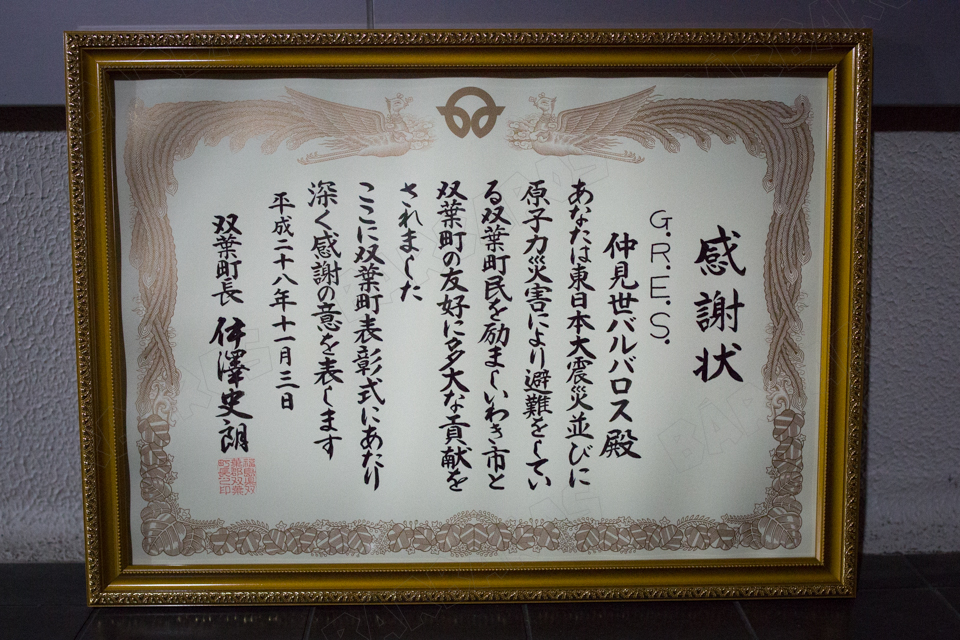 感謝状
G.R.E.S.
仲見世バルバロス殿
あなたは東日本大震災並びに
原子力災害により避難をしてい
る双葉町民を励ましいわき市と
双葉町の友好に多大な貢献を
されました
ここに双葉町表彰式にあたり
深く感謝の意を表します
平成二十八年十一月三日
双葉町長 伊澤史朗